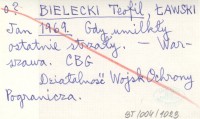 o? BIELECKI Teofil, ŁAWSKI
Jan 1969. Gdy umilkły
ostatnie strzały. — War-
szawa. CBG
Działalność Wojsk Ochrony
Pogranicza.
BT/004/1023